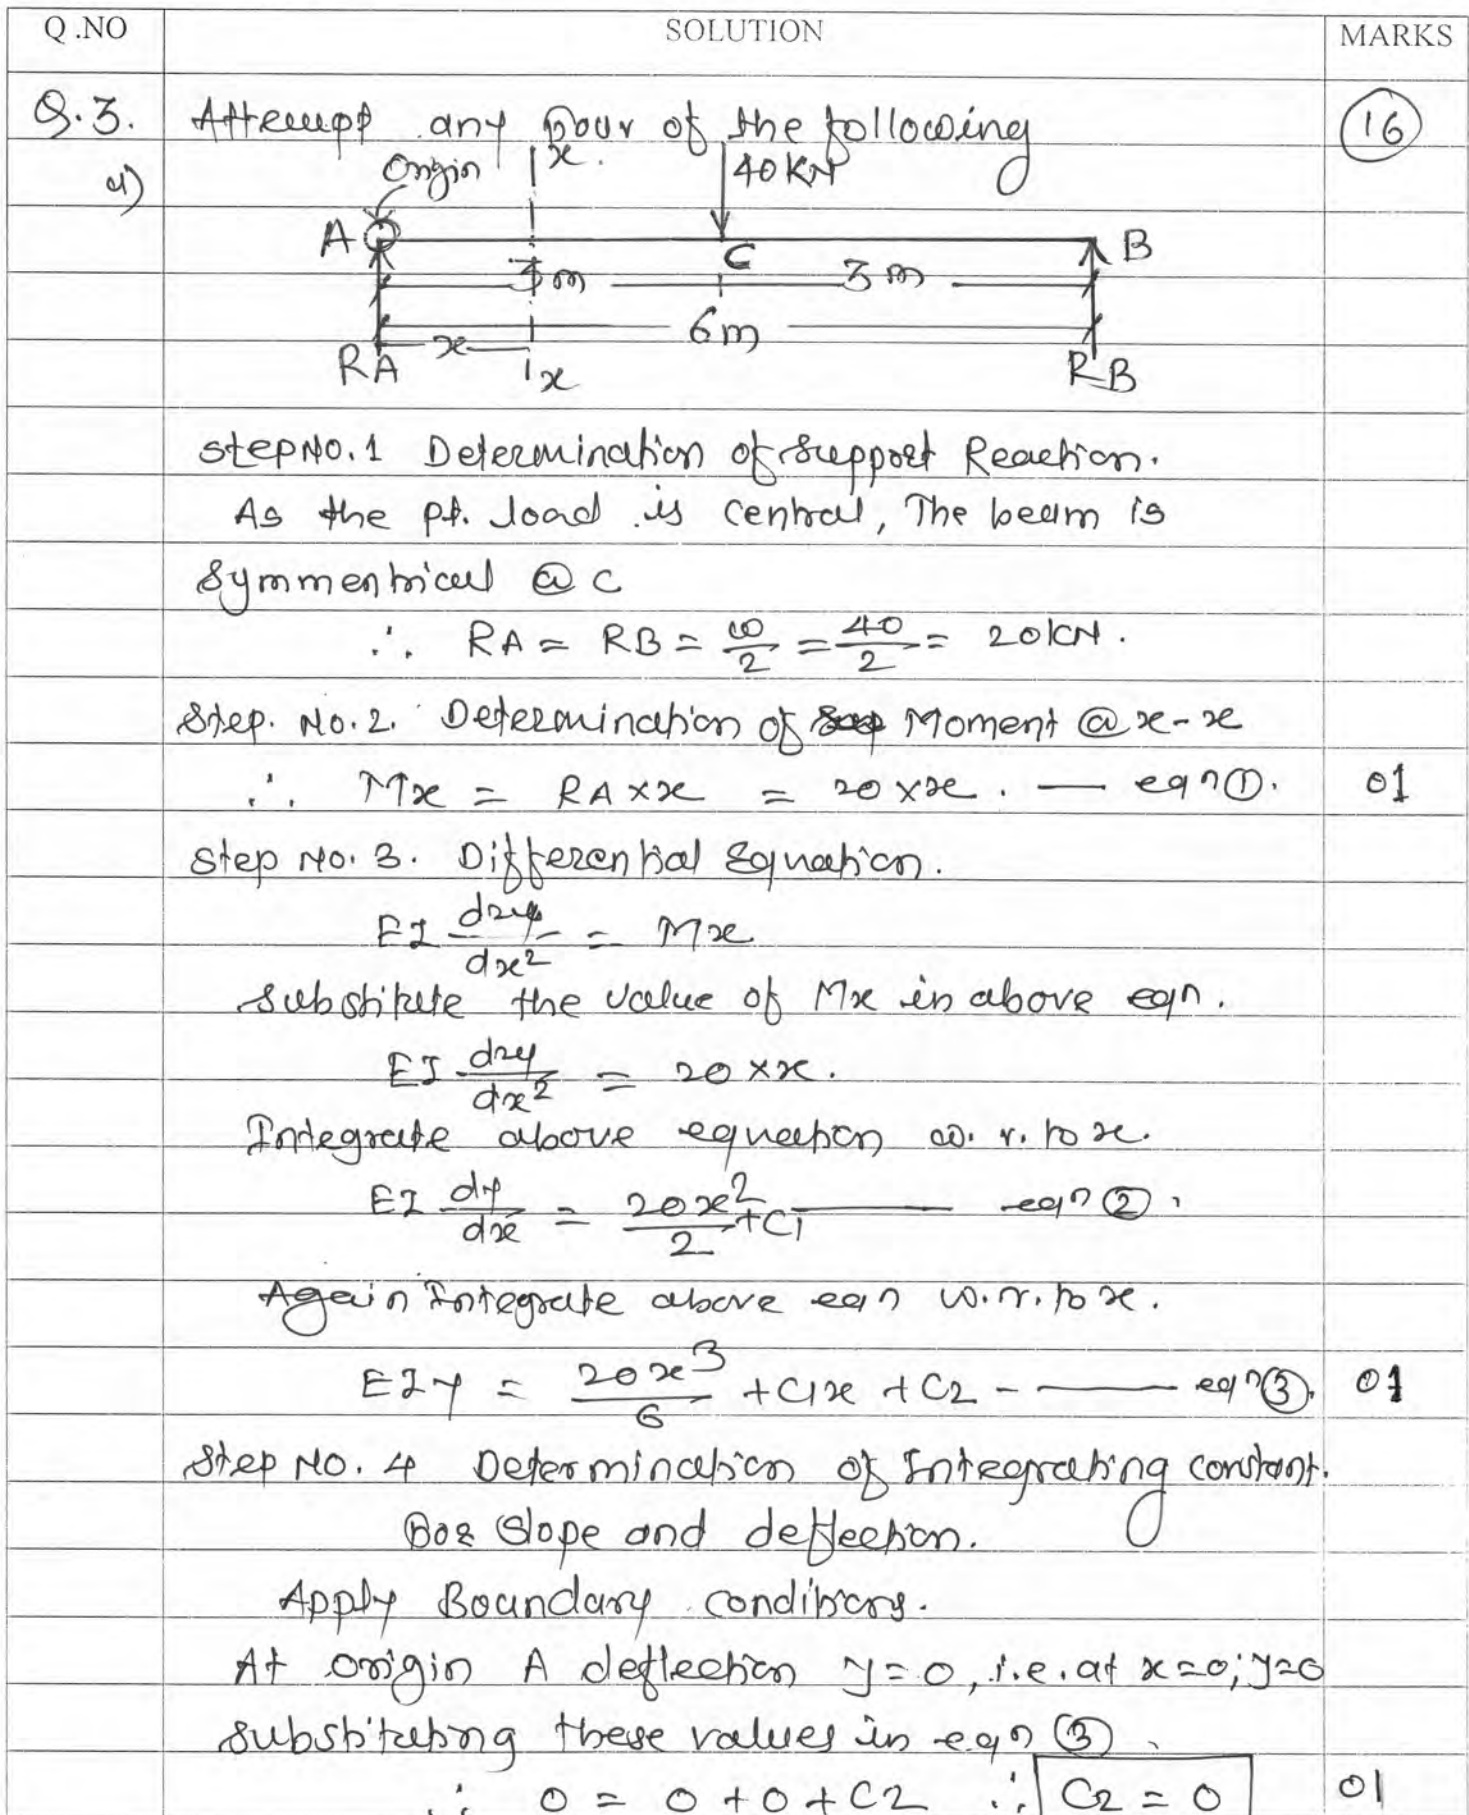 Q.NO SOLUTION MARKS
Q.3. Attempt any four of the following 16
a)
Origin x. 40 KN
A C B
3m 3m
x 6m
RA x RB
step No. 1 Determination of Support Reaction.
As the pt. load is central, The beam is
Symmentrical @ C
∴ RA = RB = ω/2 = 40/2 = 20 KN.
Step. No. 2. Determination of Moment @ x-x
∴ Mx = RA × x = 20 × x. — eqn ①. 01
Step No. 3. Differential Equation.
EI d2y/dx² = Mx
Substitute the value of Mx in above eqn.
EI d2y/dx² = 20 × x.
Integrate above equation w. r. to x.
EI dy/dx = 20x²/2 + C1 — eqn ②.
Again Integrate above eqn w. r. to x.
EIy = 20x³/6 + C1x + C2 - — eqn ③. 01
Step No. 4 Determination of Integrating constant.
for Slope and deflection.
Apply Boundary conditions.
At origin A deflection y = 0, i.e. at x = 0; y = 0
Substituting these values in eqn ③.
∴ 0 = 0 + 0 + C2 ∴ C2 = 0 01